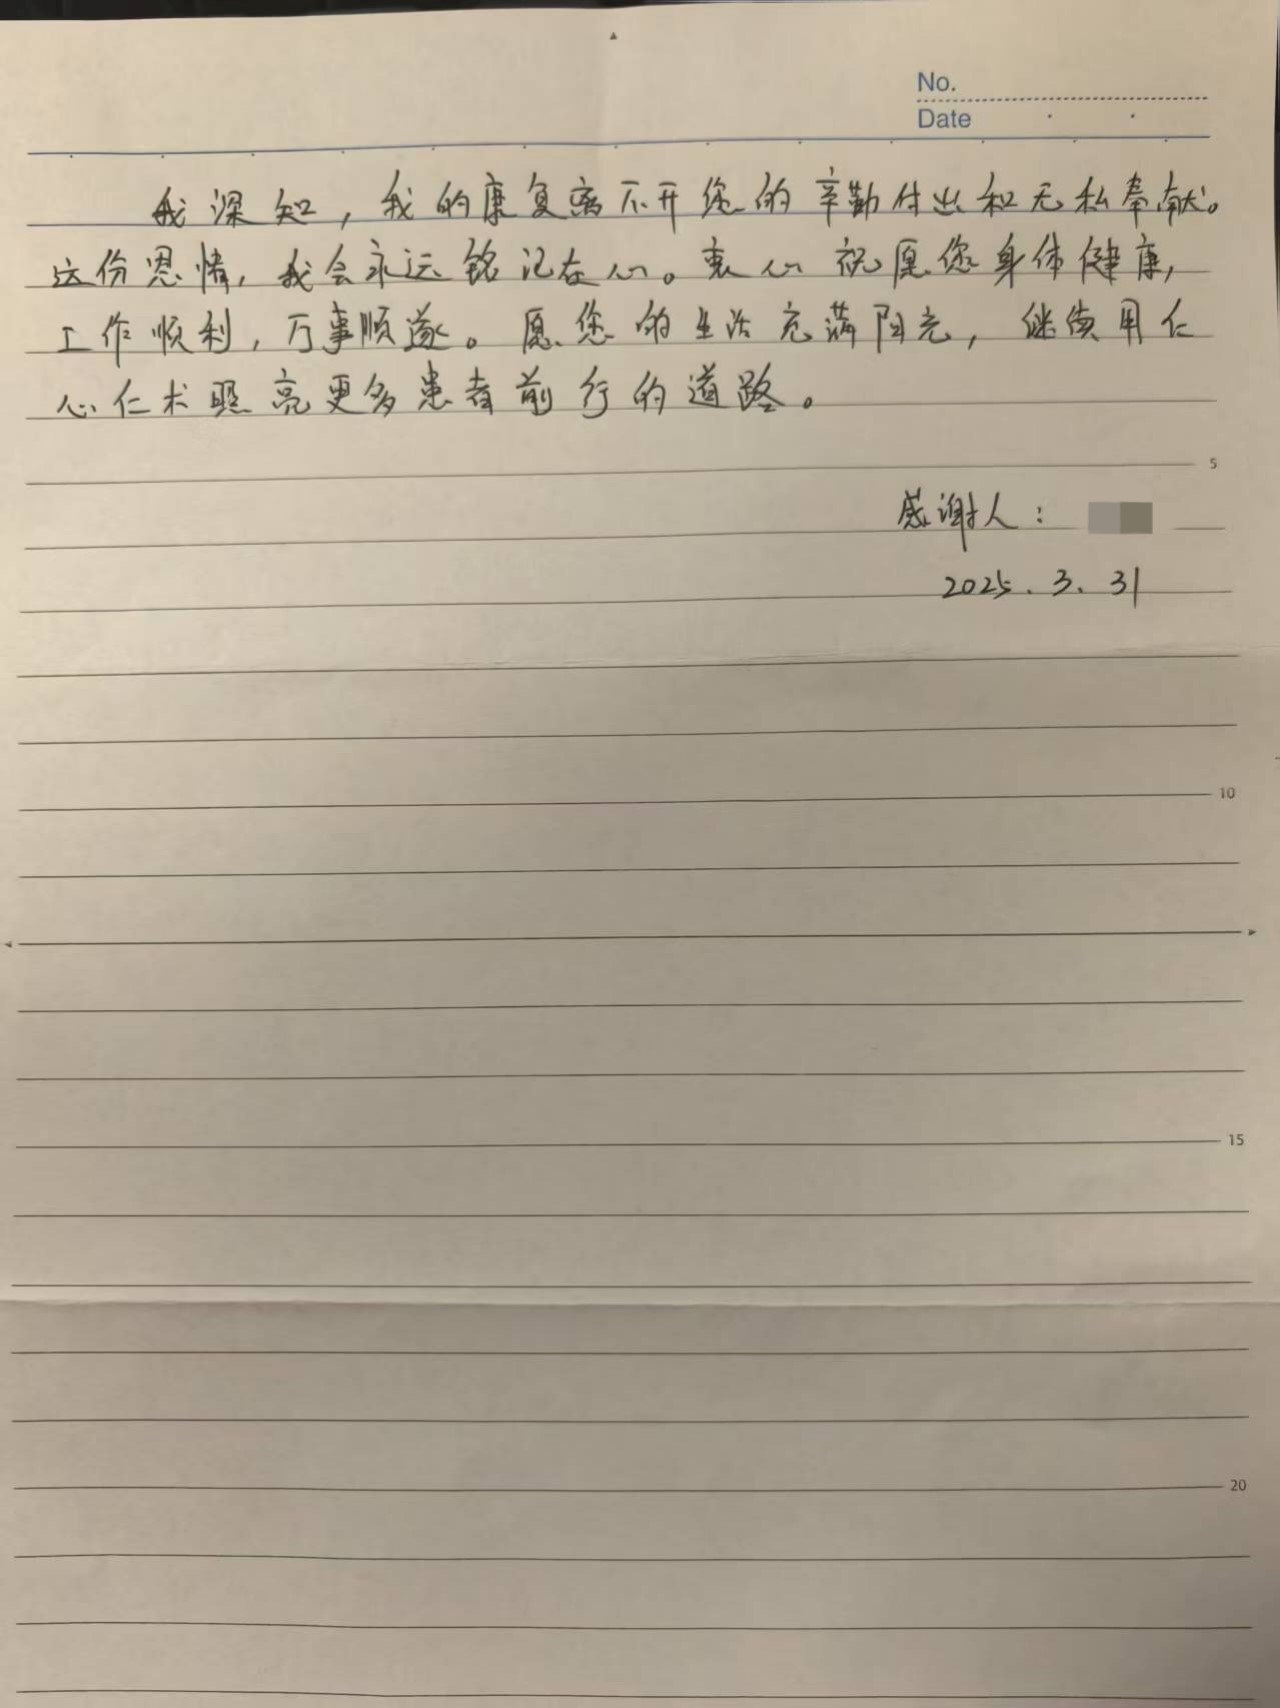 No.
Date
我深知，我的康复离不开您的辛勤付出和无私奉献。
这份恩情，我会永远铭记在心。衷心祝愿您身体健康，
工作顺利，万事顺遂。愿您的生活充满阳光，继续用仁
心仁术照亮更多患者前行的道路。
5
感谢人：
2025.3.31
10
15
20